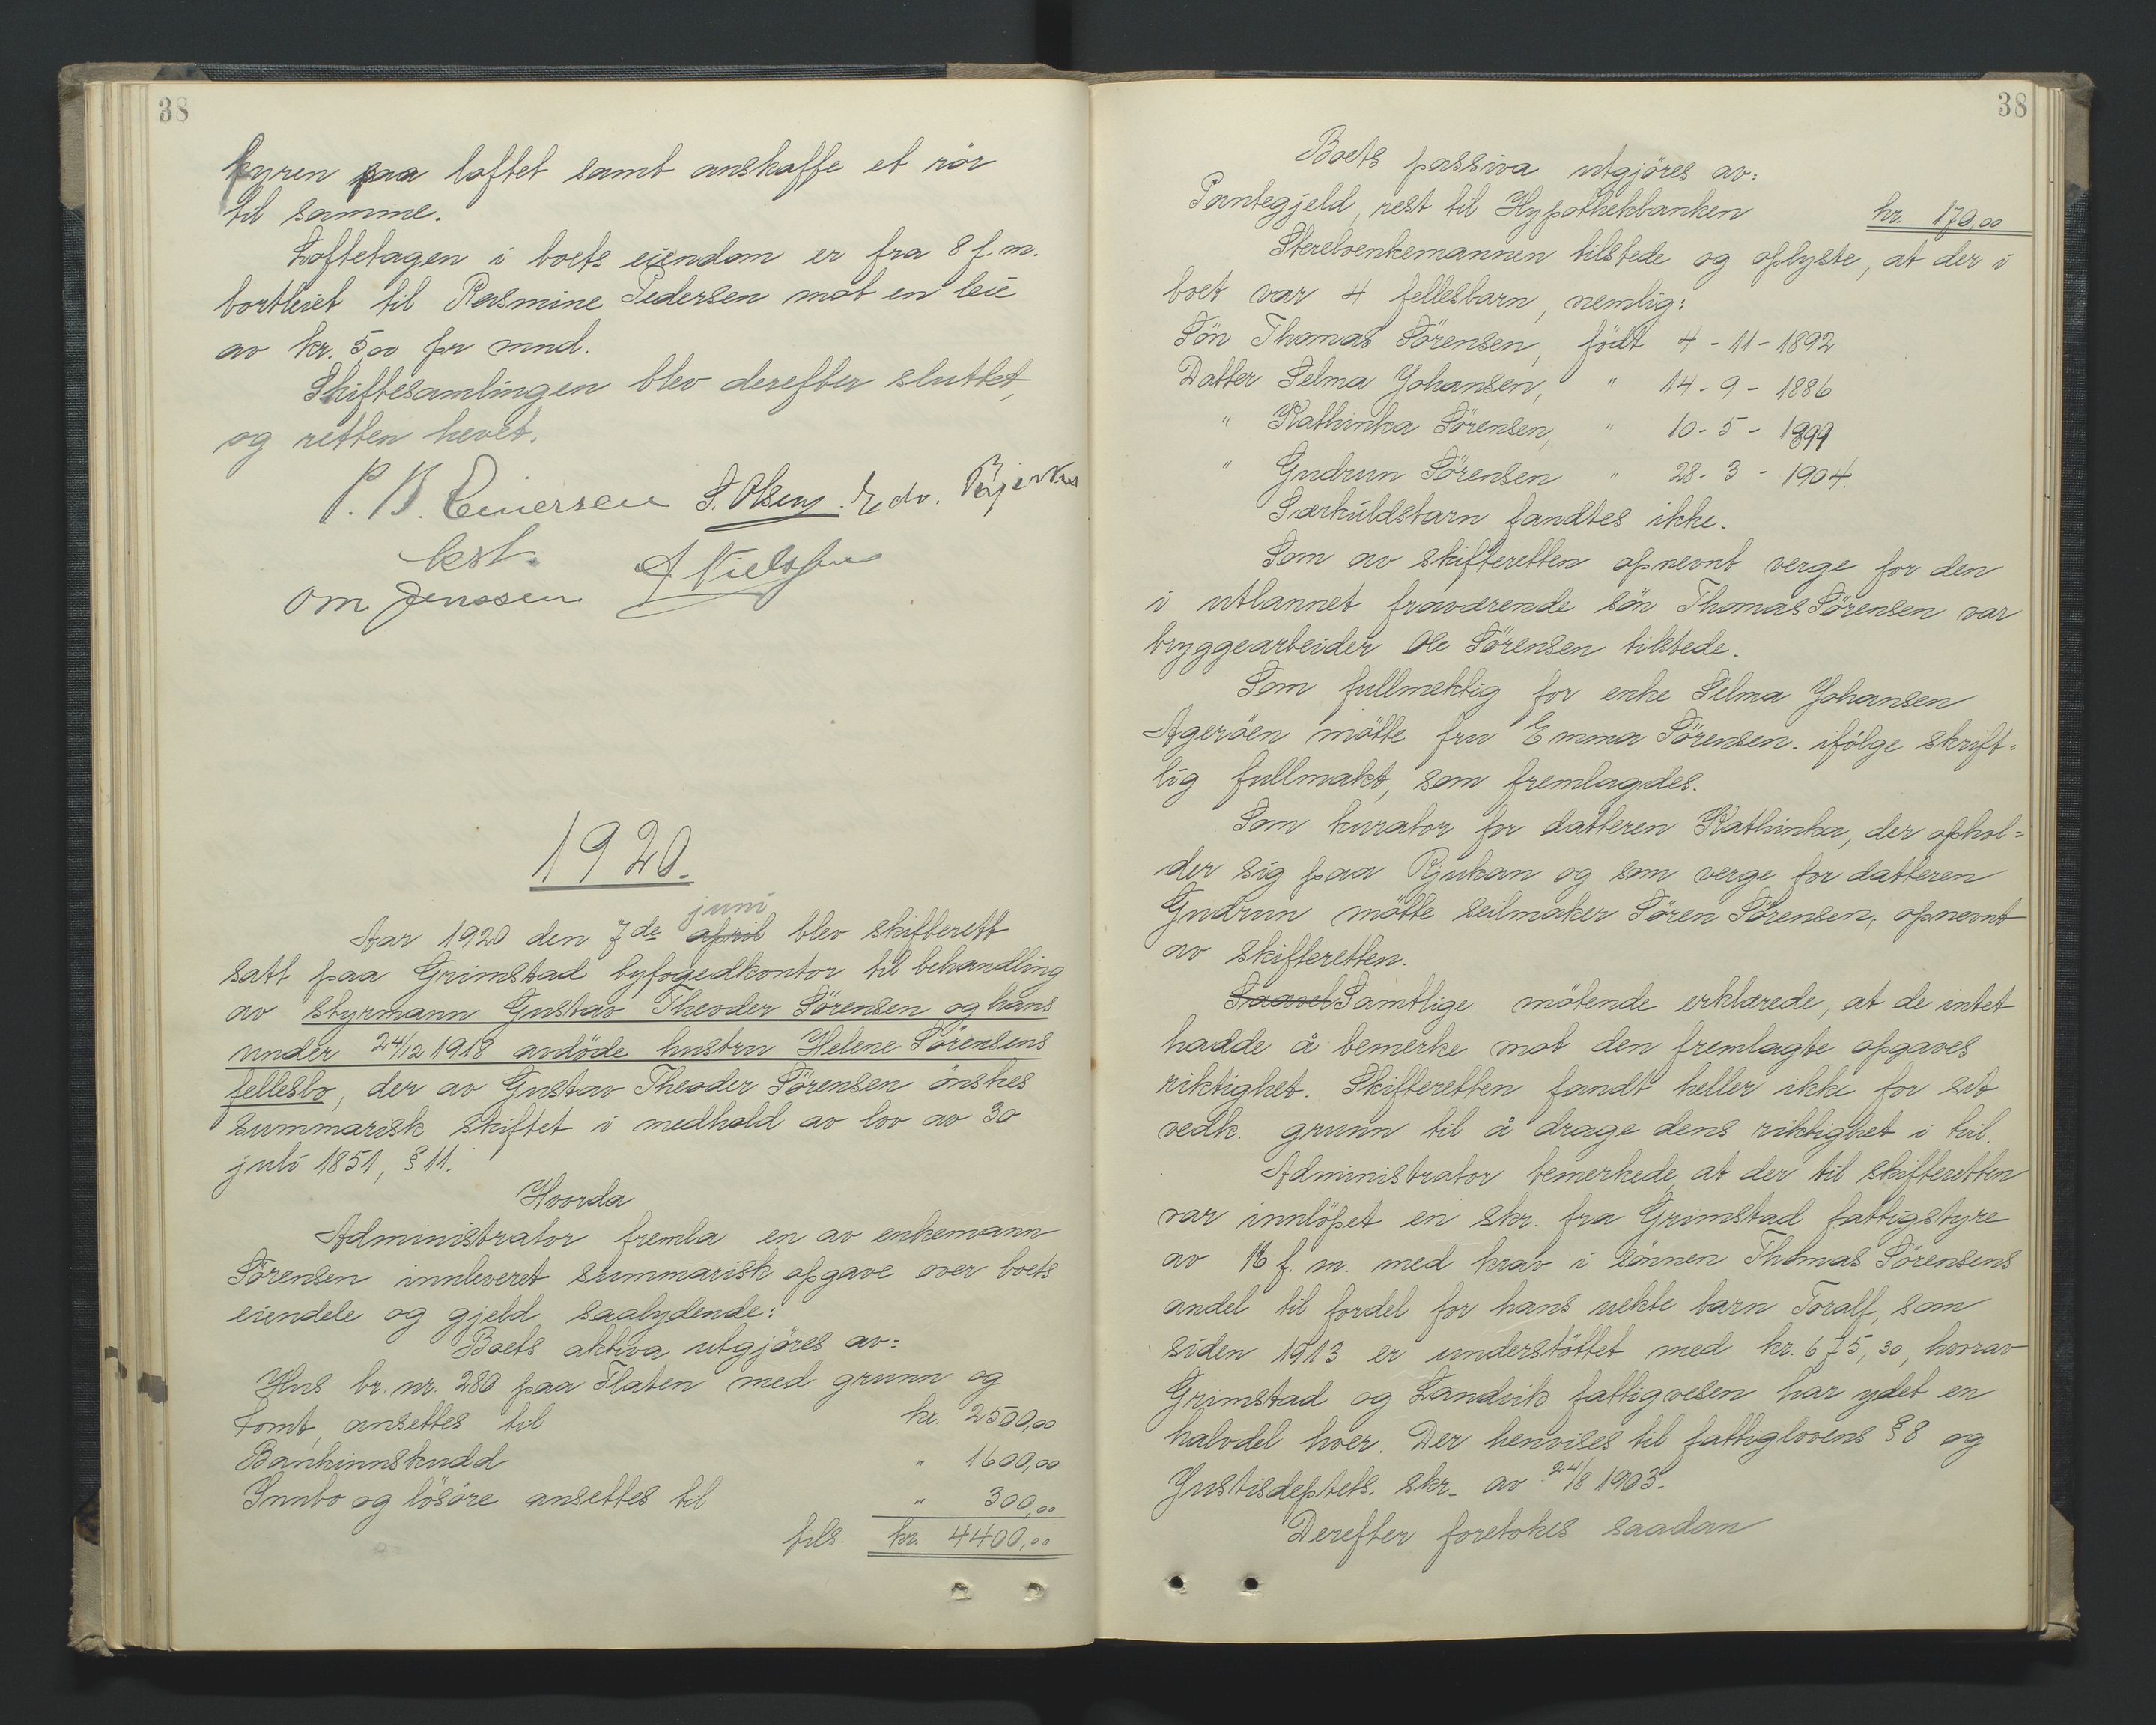 38
fyren paa loftet samt anskaffe et rör
til samme.
Loftetagen i boets eiendom er fra 8 f. m.
bortleiet til Rasmine Pedersen mot en leie
av kr. 5,00 pr mnd.
Skiftesamlingen blev derefter sluttet,
og retten hevet.
P. B. Einersen S. Olsen. Edv.
best.
O M Jenssen A Nielssen
1920.
juni
Aar 1920 den 7de april blev skifterett
satt paa Grimstad byfogedkontor til behandling
av styrmann Gustav Theodor Sörensen og hans
under 24/12 1918 avdöde hustru Helene Sörensens
fellesbo, der av Gustav Theodor Sörensen önskes
summarisk skiftet i medhold av lov av 30
juli 1851, § 11.
Hvorda
Administrator fremla en av enkemann
Sörensen innleveret summarisk opgave over boets
eiendele og gjeld saalydende:
Boets aktiva utgjöres av:
Hus br. nr. 280 paa Flaten med grunn og
tomt, ansettes til kr. 2500,00
Bankinnskudd " 1600,00
Innbo og lösöre ansettes til " 300,00
tils. kr. 4400,00
38
Boets passiva utgjöres av:
Pantegjeld, rest til Hypothekbanken kr. 170,00
Sterelvenkemannen tilstede og oplyste, at der i
boet var 4 fellesbarn, nemlig:
Sön Thomas Sörensen, födt 4 - 11 - 1892
Datter Selma Johansen, " 14 - 9 - 1886
" Kathinka Sörensen, " 10 - 5 - 1899
" Gudrun Sörensen " 28 - 3 - 1904.
Særkuldsbarn fandtes ikke.
Som av skifteretten opnevnt verge for den
i utlannet fraværende sön Thomas Sörensen var
bryggearbeider Ole Sörensen tilstede.
Som fullmektig for enke Selma Johansen
Ageröen mötte fru Emma Sörensen. ifölge skrift-
lig fullmakt, som fremlagdes.
Som kurator for datteren Kathinka, der ophol-
der sig paa Rjukan og som verge for datteren
Gudrun mötte seilmaker Sören Sörensen, opnevnt
av skifteretten.
Saavel Samtlige mötende erklærede, at de intet
hadde å bemerke mot den fremlagte opgaves
riktighet. Skifteretten fandt heller ikke for sit
vedk. grunn til å drage dens riktighet i tvil.
Administrator bemerkede, at der til skifteretten
var innlöpet en skr. fra Grimstad fattigstyre
av 16 f. m. med krav i sönnen Thomas Sörensens
andel til fordel for hans uekte barn Toralf, som
siden 1913 er understöttet med kr. 675,30, hvorav
Grimstad og Landvik fattigvesen har ydet en
halvdel hver. Der henvises til fattiglovens § 8 og
Justisdeptets. skr. av 24/8 1903.
Derefter foretokes saadan